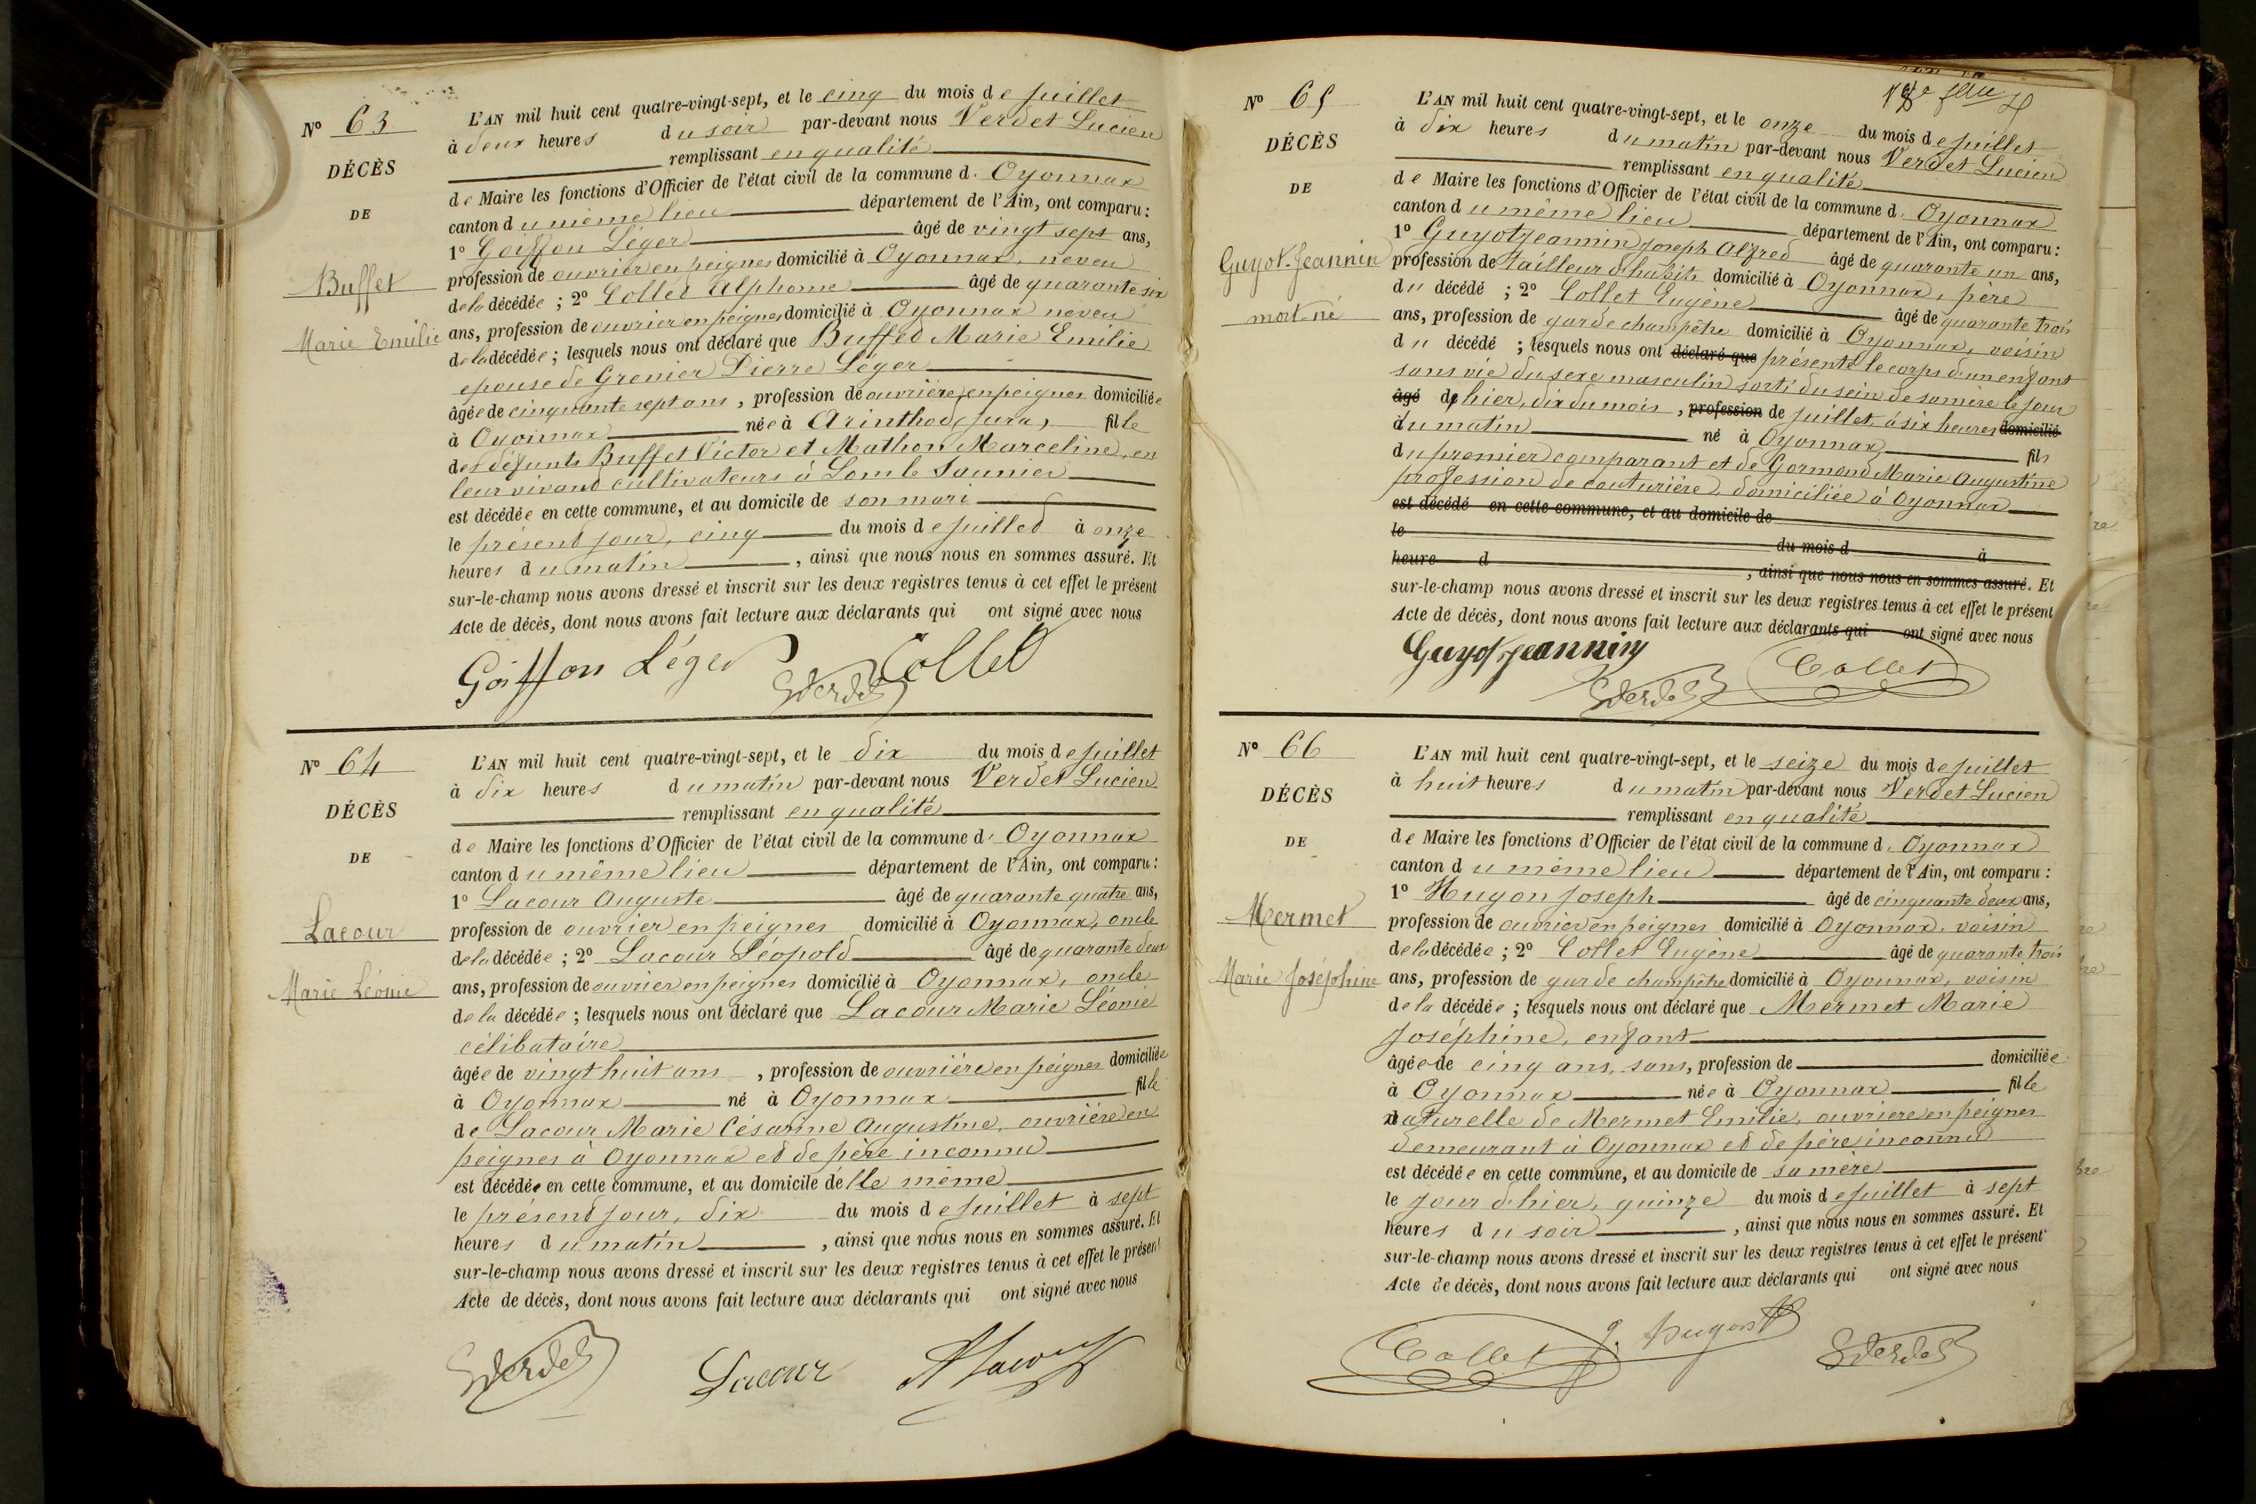 N° 63
DÉCÈS
DE
Buffet
Marie Emilie
L'AN mil huit cent quatre-vingt-sept, et le cinq du mois de juillet
à deux heures du soir par-devant nous Verdet Lucien
remplissant en qualité
de Maire les fonctions d'Officier de l'état civil de la commune d. Oyonnax
canton du même lieu département de l'Ain, ont comparu :
1° Goiffon Léger âgé de vingt sept ans,
profession de ouvrier en peignes domicilié à Oyonnax, neveu
de la décédée ; 2° Collet Alphonse âgé de quarante six
ans, profession de ouvrier en peignes domicilié à Oyonnax neveu
de la décédée ; lesquels nous ont déclaré que Buffet Marie Emilie
epouse de Grenier Pierre Léger
âgée de cinquante sept ans, profession de ouvrière en peignes domiciliée
à Oyonnax née à Arinthod, Jura, fille
des défunts Buffet Victor et Mathon Marceline, en
leur vivant cultivateurs à Lons le Saunier
est décédée en cette commune, et au domicile de son mari
le présent jour, cinq du mois de juillet à onze
heures du matin, ainsi que nous nous en sommes assuré. Et
sur-le-champ nous avons dressé et inscrit sur les deux registres tenus à cet effet le présent
Acte de décès, dont nous avons fait lecture aux déclarants qui ont signé avec nous
Goiffon Léger Verdet Collet
N° 64
DÉCÈS
DE
Lacour
Marie Léonie
L'AN mil huit cent quatre-vingt-sept, et le dix du mois de juillet
à dix heures du matin par-devant nous Verdet Lucien
remplissant en qualité
de Maire les fonctions d'Officier de l'état civil de la commune d' Oyonnax
canton du même lieu département de l'Ain, ont comparu :
1° Lacour Auguste âgé de quarante quatre ans,
profession de ouvrier en peignes domicilié à Oyonnax, oncle
de la décédée ; 2° Lacour Léopold âgé de quarante deux
ans, profession de ouvrier en peignes domicilié à Oyonnax, oncle
de la décédée ; lesquels nous ont déclaré que Lacour Marie Léonie
célibataire
âgée de vingt huit ans, profession de ouvrière en peignes domiciliée
à Oyonnax né à Oyonnax fille
de Lacour Marie Césarine Augustine, ouvrière en
peignes à Oyonnax et de père inconnu
est décédée en cette commune, et au domicile d'elle même
le présent jour, dix du mois de juillet à sept
heures du matin, ainsi que nous nous en sommes assuré. Et
sur-le-champ nous avons dressé et inscrit sur les deux registres tenus à cet effet le présent
Acte de décès, dont nous avons fait lecture aux déclarants qui ont signé avec nous
Verdet Lacour A Lacour
N° 65
DÉCÈS
DE
Guyot-Jeannin
mort-né
L'AN mil huit cent quatre-vingt-sept, et le onze du mois de juillet
à dix heures du matin par-devant nous Verdet Lucien
remplissant en qualité
de Maire les fonctions d'Officier de l'état civil de la commune d. Oyonnax
canton du même lieu département de l'Ain, ont comparu :
1° Guyotjeannin Joseph Alfred âgé de quarante un ans,
profession de tailleur d'habits domicilié à Oyonnax, père
du décédé ; 2° Collet Eugène âgé de quarante trois
ans, profession de garde champêtre domicilié à Oyonnax, voisin
du décédé ; lesquels nous ont déclaré que présenté le corps d'un enfant
sans vie du sexe masculin sorti du sein de sa mère le jour
âgé d'hier, dix du mois, profession de juillet à six heures domicilié
du matin né à Oyonnax fils
du premier comparant et de Gormond Marie Augustine
profession de couturière, domiciliée à Oyonnax
est décédé en cette commune, et au domicile de
le du mois d à
heure d , ainsi que nous nous en sommes assuré. Et
sur-le-champ nous avons dressé et inscrit sur les deux registres tenus à cet effet le présent
Acte de décès, dont nous avons fait lecture aux déclarants qui ont signé avec nous
Guyotjeannin Verdet Collet
N° 66
DÉCÈS
DE
Mermet
Marie Joséphine
L'AN mil huit cent quatre-vingt-sept, et le seize du mois de juillet
à huit heures du matin par-devant nous Verdet Lucien
remplissant en qualité
de Maire les fonctions d'Officier de l'état civil de la commune d. Oyonnax
canton du même lieu département de l'Ain, ont comparu :
1° Hugon Joseph âgé de cinquante deux ans,
profession de ouvrier en peignes domicilié à Oyonnax, voisin
de la décédée ; 2° Collet Eugène âgé de quarante trois
ans, profession de garde champêtre domicilié à Oyonnax, voisin
de la décédée ; lesquels nous ont déclaré que Mermet Marie
Joséphine, enfant
âgée de cinq ans, sans, profession de domiciliée
à Oyonnax née à Oyonnax fille
naturelle de Mermet Emilie, ouvrière en peignes
demeurant à Oyonnax et de père inconnu
est décédée en cette commune, et au domicile de sa mère
le jour d'hier, quinze du mois de juillet à sept
heures du soir, ainsi que nous nous en sommes assuré. Et
sur-le-champ nous avons dressé et inscrit sur les deux registres tenus à cet effet le présent
Acte de décès, dont nous avons fait lecture aux déclarants qui ont signé avec nous
Collet J. Hugon Verdet